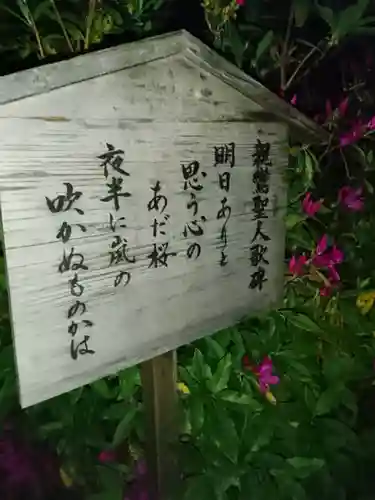 親鸞聖人歌碑
明日ありと
思う心の
あだ桜
夜半に嵐の
吹かぬものかは